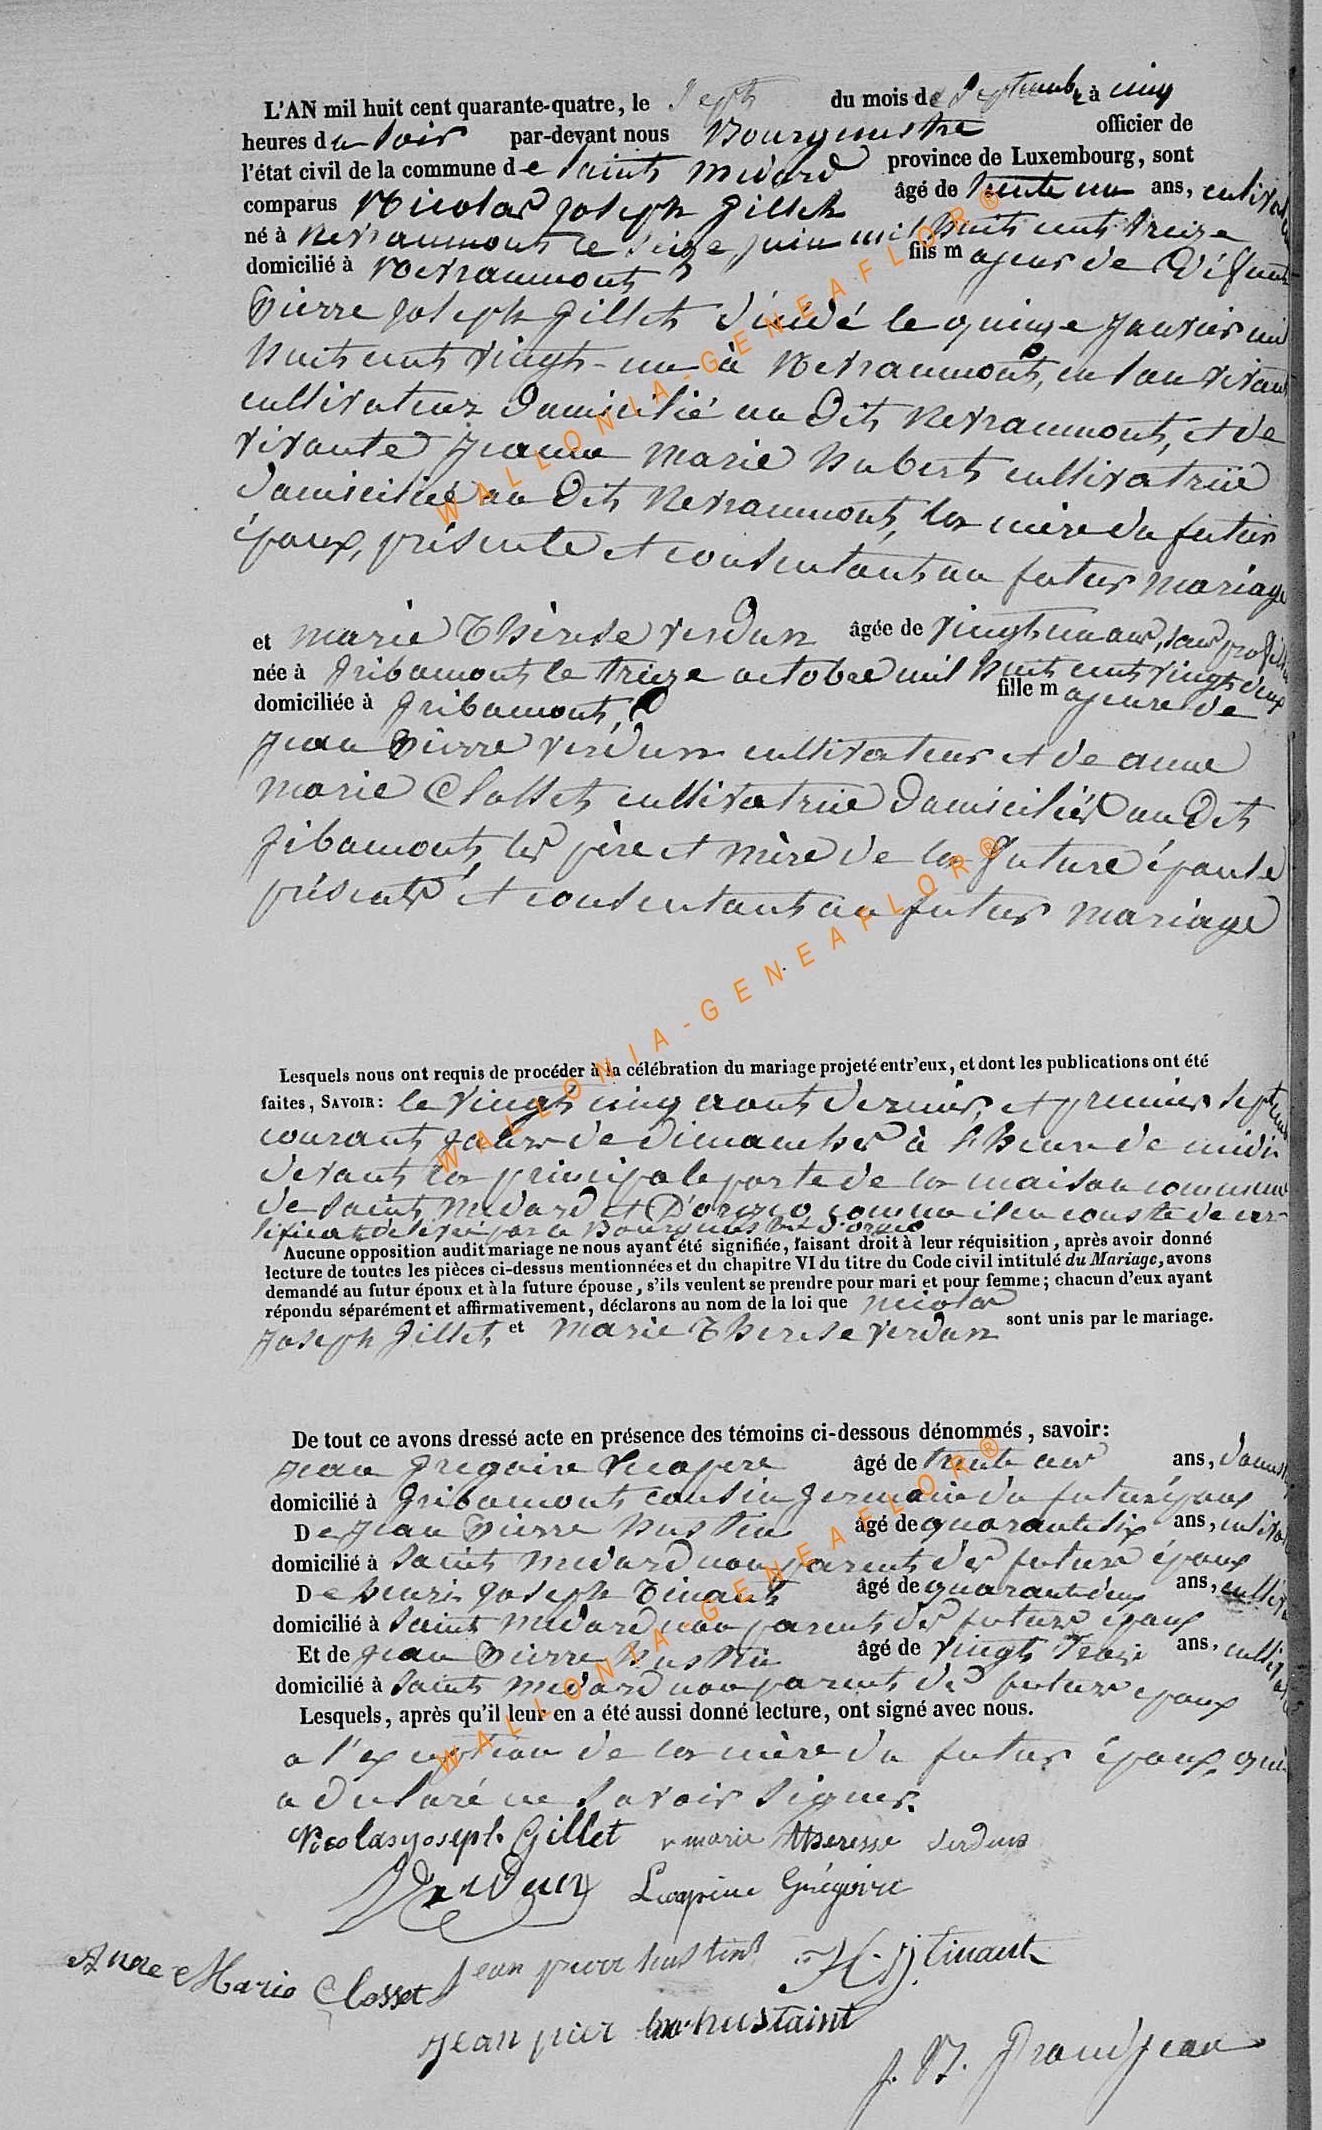 L'AN mil huit cent quarante-quatre, le Sept du mois de Septembre à cinq
heures du soir par-devant nous Bourgmestre officier de
l'état civil de la commune de saint médard province de Luxembourg, sont
comparus Nicolas joseph Gillet âgé de trente un ans, cultivateur
né à Nevraumont le seize juin mil huit cent treize
domicilié à Nevraumont fils majeur de Défunt
Pierre joseph Gillet décédé le quinze janvier mil
huit cent vingt-un à Nevraumont, en son vivant
cultivateur domicilié au Dit Nevraumont, et de
vivante jeanne marie hubert cultivatrice
domiciliée au Dit Nevraumont, la mère du futur
époux, présente et consentant au futur mariage
et marie Thérèse verdun âgée de vingt un ans, sans profession
née à Gribomont le treize octobre mil huit cent vingt deux
domiciliée à Gribomont, fille majeure de
jean pierre verdun cultivateur et de anne
marie Closset cultivatrice domiciliés au Dit
Gibomont, les père et mère de la future épouse
présents et consentant au futur mariage
Lesquels nous ont requis de procéder à la célébration du mariage projeté entr'eux, et dont les publications ont été
faites, SAVOIR: le vingt cinq août dernier, et premier septembre
courant jours de dimanches à l'heure de midi
devant la principale porte de la maison commune
de saint médard et D'orgeo comme il en conste de cer-
tificat délivré par le Bourgmestre d'orgeo
Aucune opposition audit mariage ne nous ayant été signifiée, faisant droit à leur réquisition, après avoir donné
lecture de toutes les pièces ci-dessus mentionnées et du chapitre VI du titre du Code civil intitulé du Mariage, avons
demandé au futur époux et à la future épouse, s'ils veulent se prendre pour mari et pour femme; chacun d'eux ayant
répondu séparément et affirmativement, déclarons au nom de la loi que nicolas
Joseph Gillet et Marie Therese verdun sont unis par le mariage.
De tout ce avons dressé acte en présence des témoins ci-dessous dénommés, savoir:
jean Grégoire âgé de trente ans ans,
domicilié à Gribomont cousin germain du futur époux
De jean Pierre hustin âgé de quarante six ans, cultivateur
domicilié à saint médard non parent des futurs époux
De henri joseph Tinant âgé de quarante deux ans, cultivateur
domicilié à saint médard non parent des futurs époux
Et de jean Pierre hustin âgé de vingt trois ans, cultivateur
domicilié à saint médard non parent des futurs époux
Lesquels, après qu'il leur en a été aussi donné lecture, ont signé avec nous.
a l'exception de la mère du futur époux, qui
a déclaré ne savoir signer.
Nicolas joseph Gillet marie theresse verdun
Verdun Grégoire
Anne Marie Closset jean pierre hustin H. j. tinant
jean pier hustaint
J. B. Grandjean
WALLONIA-GENEAFLOR®
WALLONIA-GENEAFLOR®
WALLONIA-GENEAFLOR®